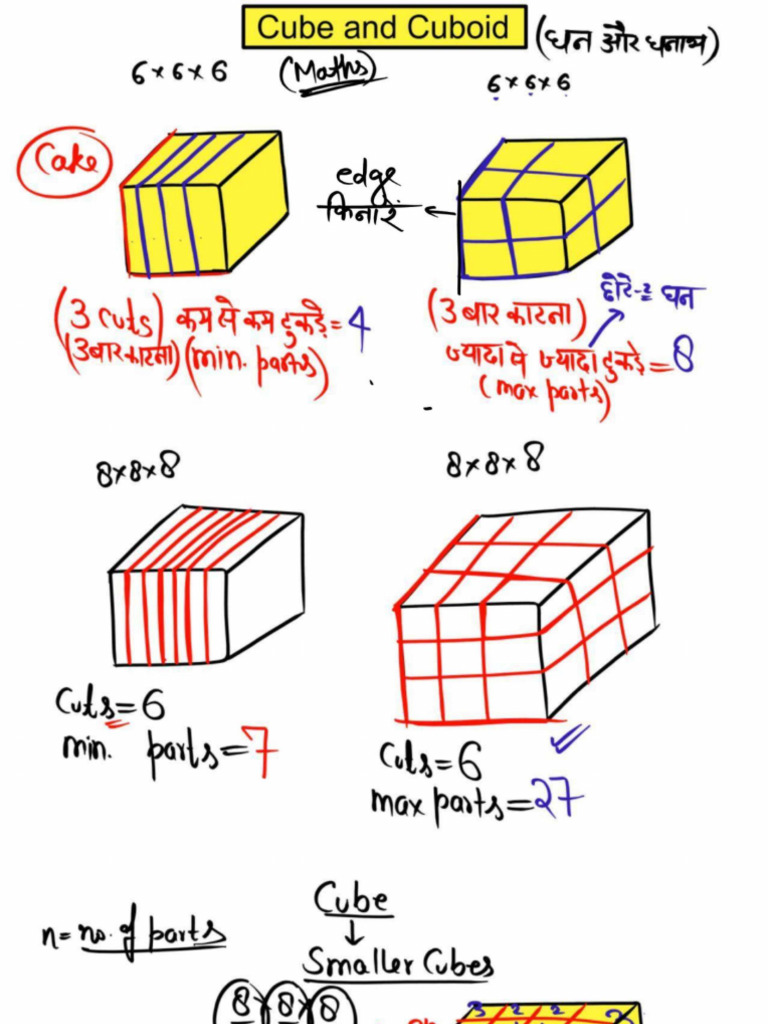 Cube and Cuboid (घन और घनाभ)
6×6×6 (Maths) 6×6×6
Cake
edge
किनारे
(3 cuts) कम से कम टुकड़े = 4
(3 बार काटना) (min. parts)
छोटे-2 घन
(3 बार काटना)
ज्यादा से ज्यादा टुकड़े = 8
(max parts)
8×8×8
8×8×8
Cuts=6
min. parts=7
Cuts=6
max parts=27
Cube
n= no. of parts
Smaller Cubes
8×8×8
3 2 2